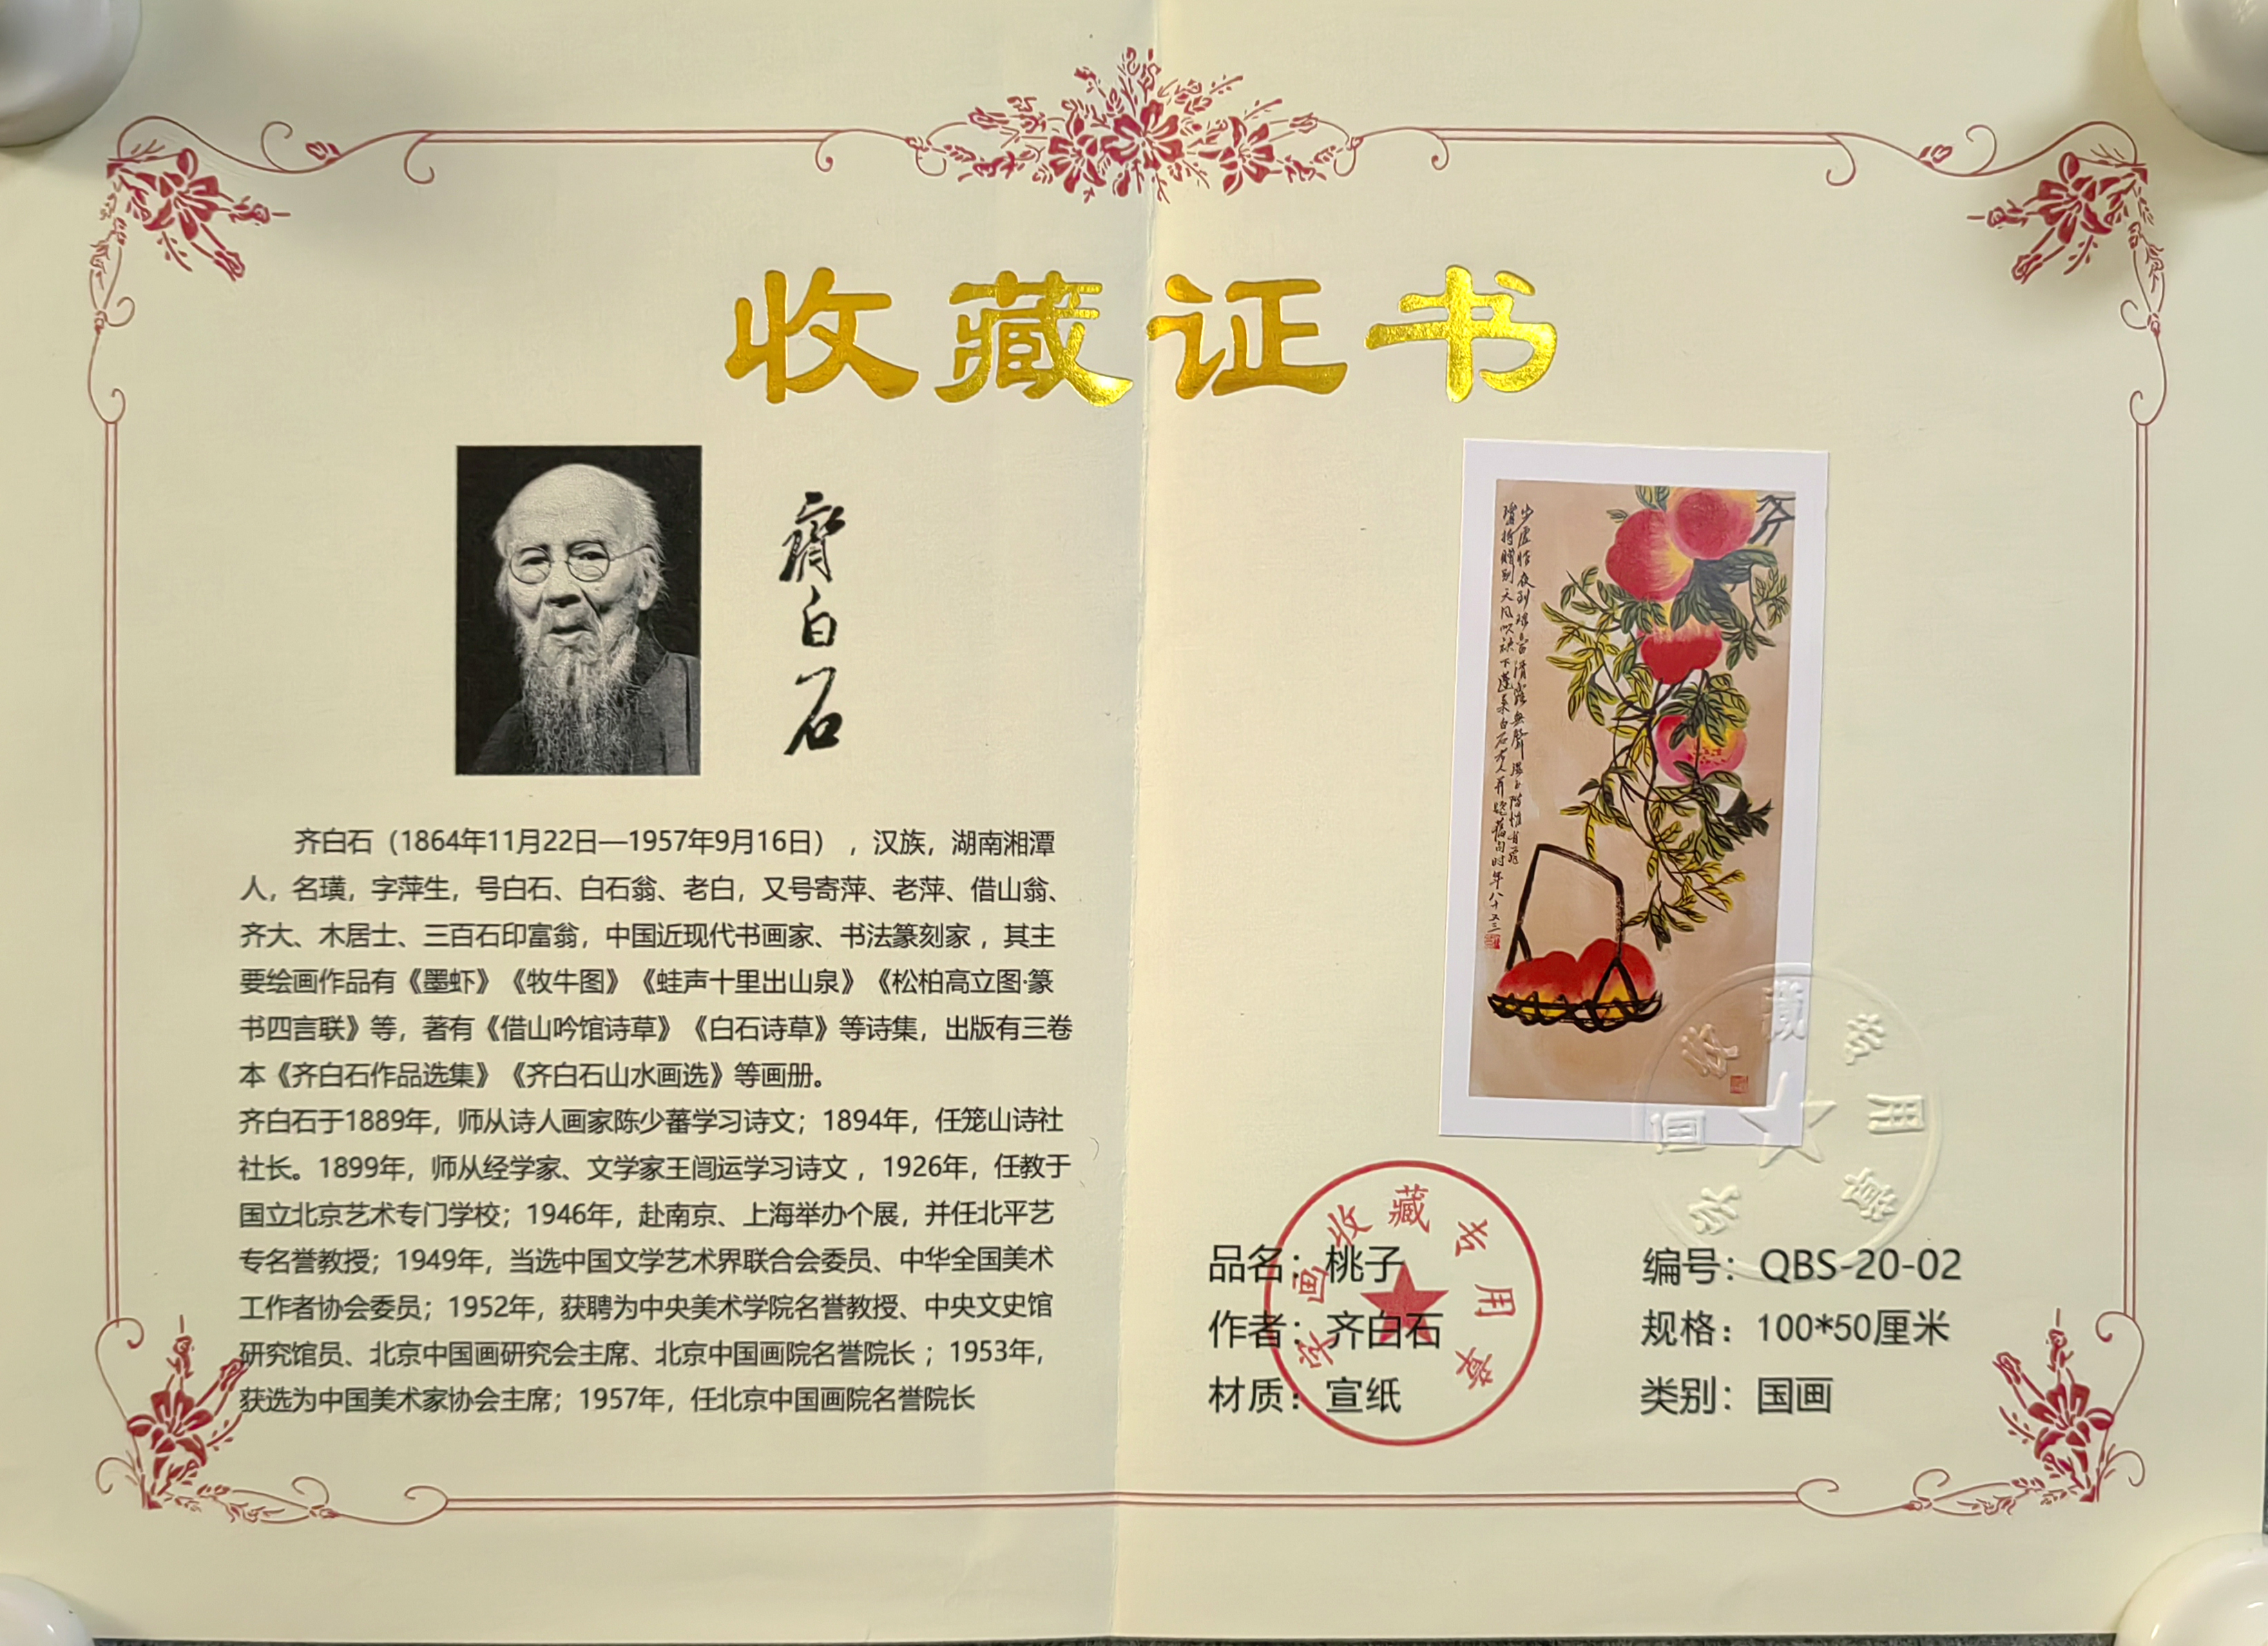 收藏证书
齐白石
齐白石（1864年11月22日—1957年9月16日），汉族，湖南湘潭
人，名璜，字萍生，号白石、白石翁、老白，又号寄萍、老萍、借山翁、
齐大、木居士、三百石印富翁，中国近现代书画家、书法篆刻家，其主
要绘画作品有《墨虾》《牧牛图》《蛙声十里出山泉》《松柏高立图·篆
书四言联》等，著有《借山吟馆诗草》《白石诗草》等诗集，出版有三卷
本《齐白石作品选集》《齐白石山水画选》等画册。
齐白石于1889年，师从诗人画家陈少蕃学习诗文；1894年，任笼山诗社
社长。1899年，师从经学家、文学家王闿运学习诗文，1926年，任教于
国立北京艺术专门学校；1946年，赴南京、上海举办个展，并任北平艺
专名誉教授；1949年，当选中国文学艺术界联合会委员、中华全国美术
工作者协会委员；1952年，获聘为中央美术学院名誉教授、中央文史馆
研究馆员、北京中国画研究会主席、北京中国画院名誉院长；1953年，
获选为中国美术家协会主席；1957年，任北京中国画院名誉院长
品名：桃子
作者：齐白石
材质：宣纸
编号：QBS-20-02
规格：100*50厘米
类别：国画
字画收藏专用章
字画收藏专用章